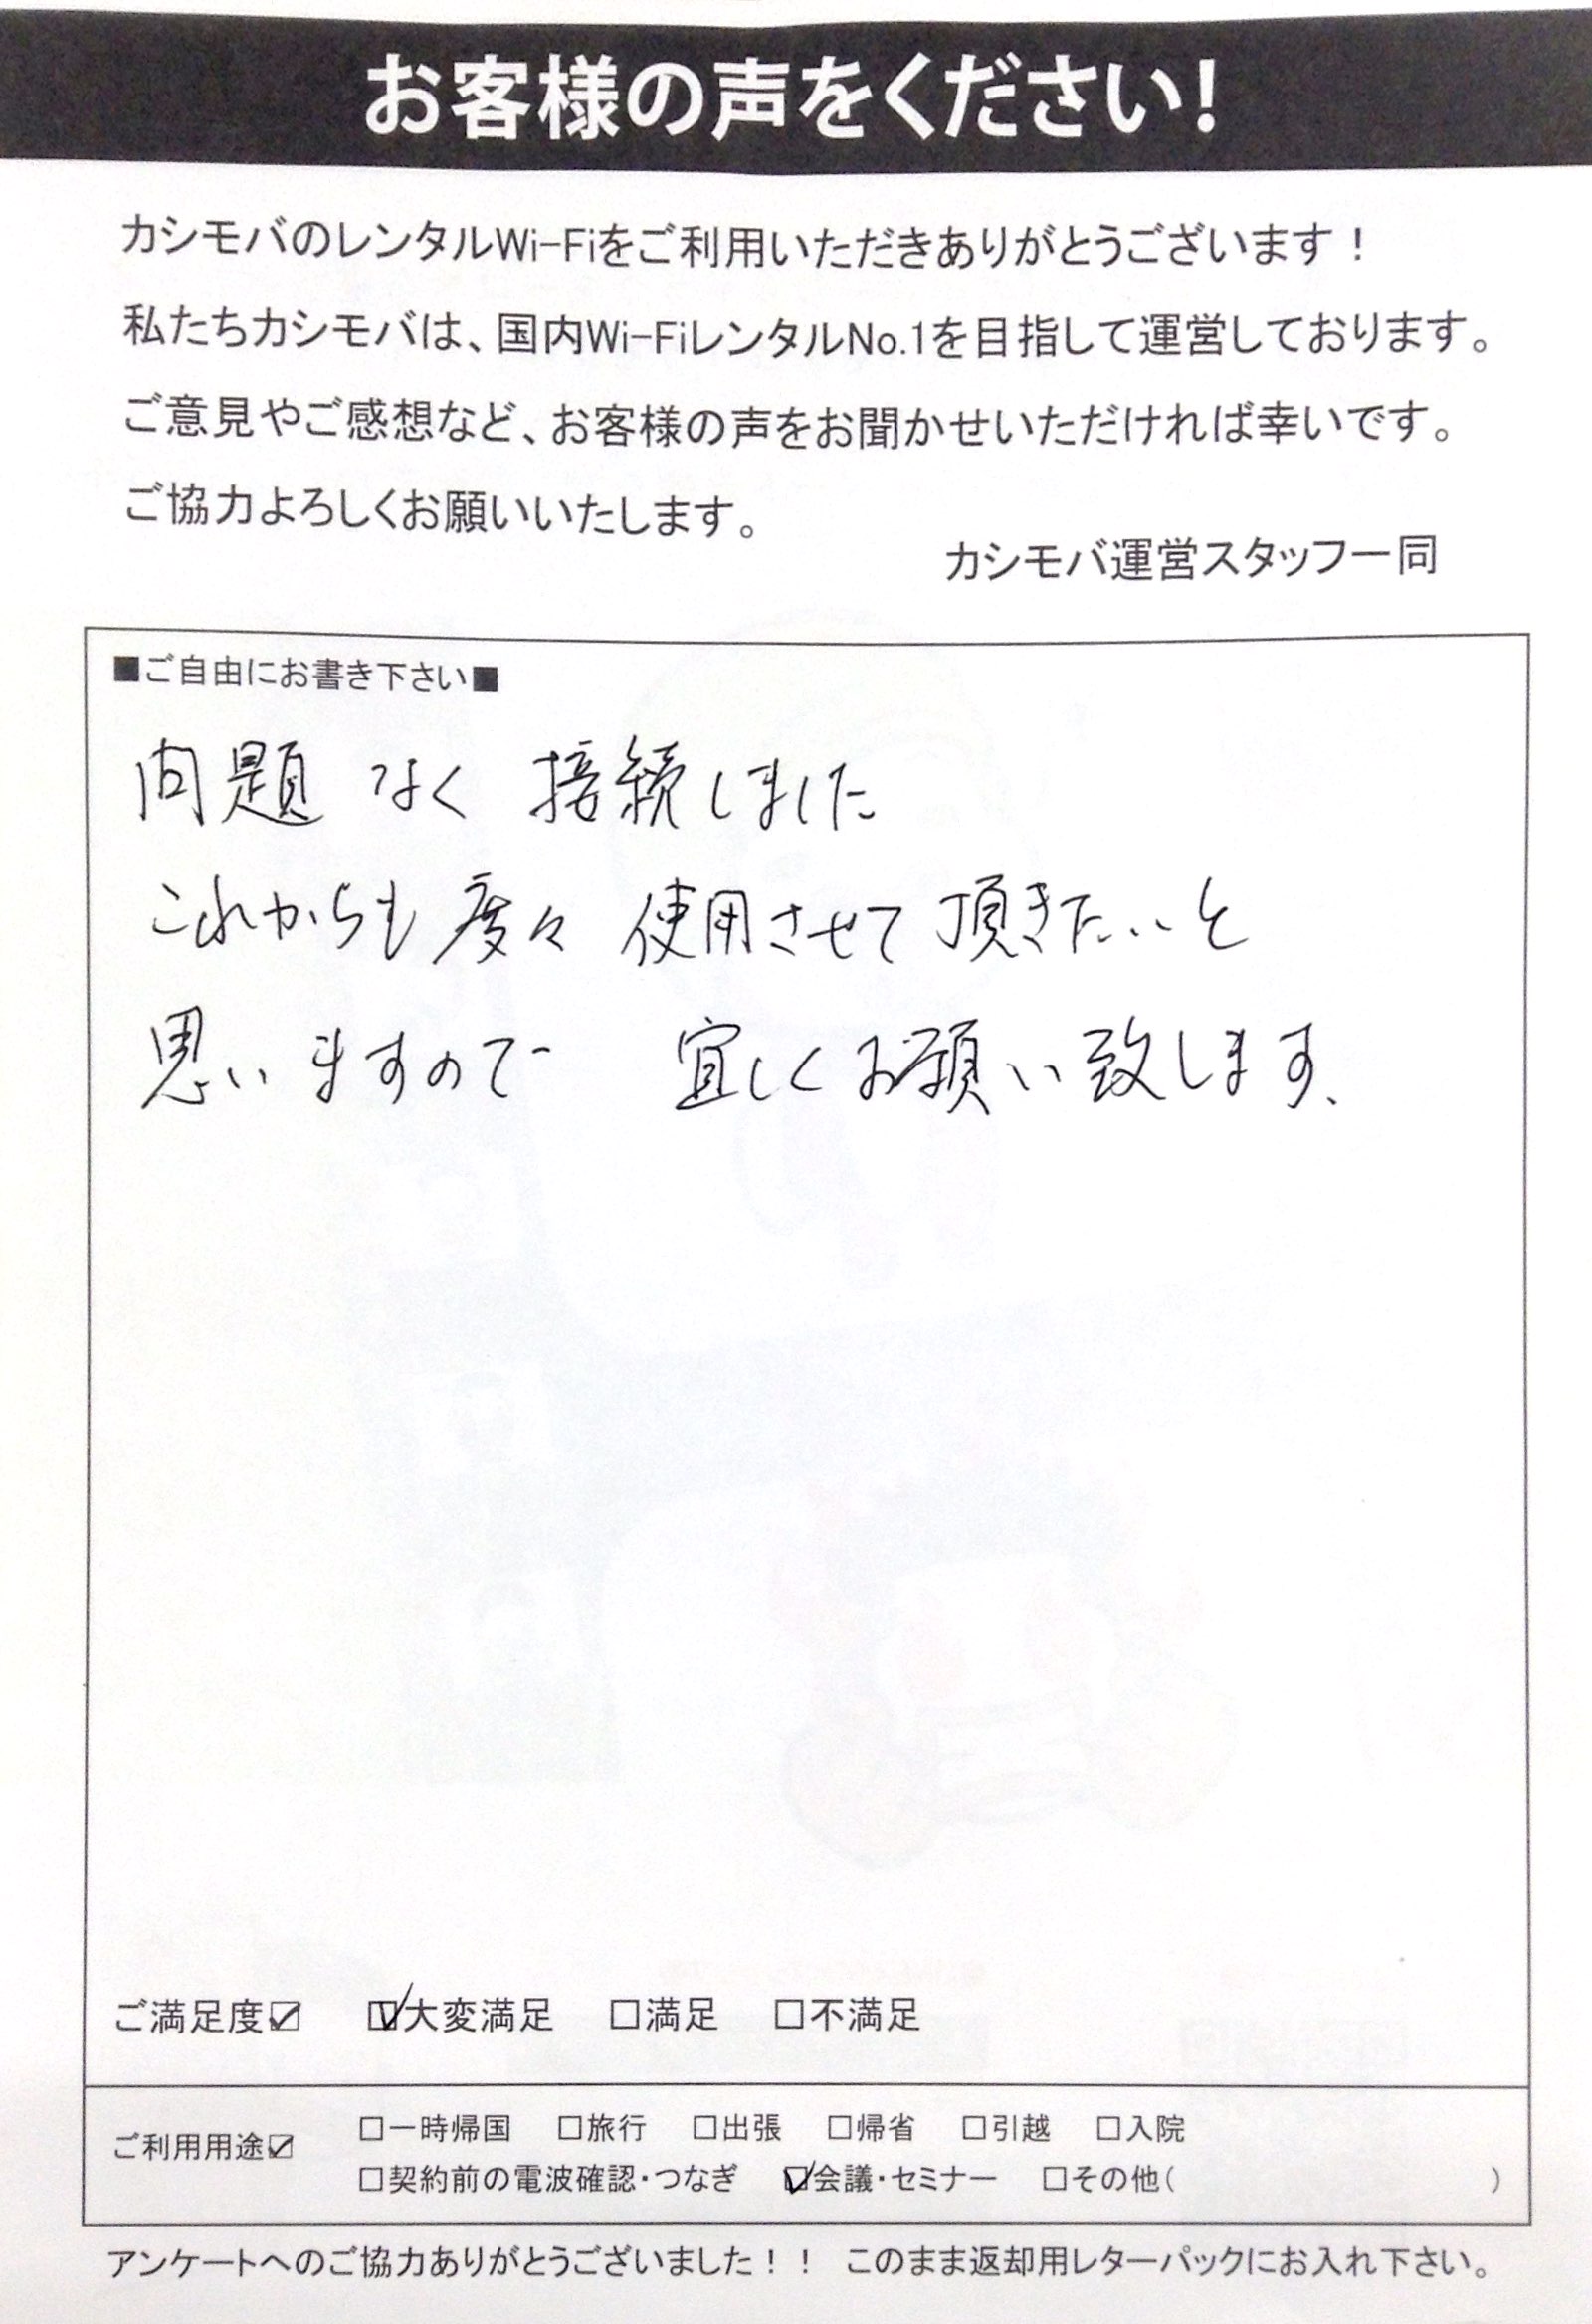 お客様の声をください!
カシモバのレンタルWi-Fiをご利用いただきありがとうございます！
私たちカシモバは、国内Wi-FiレンタルNo.1を目指して運営しております。
ご意見やご感想など、お客様の声をお聞かせいただければ幸いです。
ご協力よろしくお願いいたします。
カシモバ運営スタッフ一同
■ご自由にお書き下さい■
問題なく接続しました
これからも度々使用させて頂きたいと
思いますので 宜しくお願い致します、
ご満足度☑ ☑大変満足 □満足 □不満足
ご利用用途☑ □一時帰国 □旅行 □出張 □帰省 □引越 □入院
□契約前の電波確認・つなぎ ☑会議・セミナー □その他( )
アンケートへのご協力ありがとうございました！！ このまま返却用レターパックにお入れ下さい。